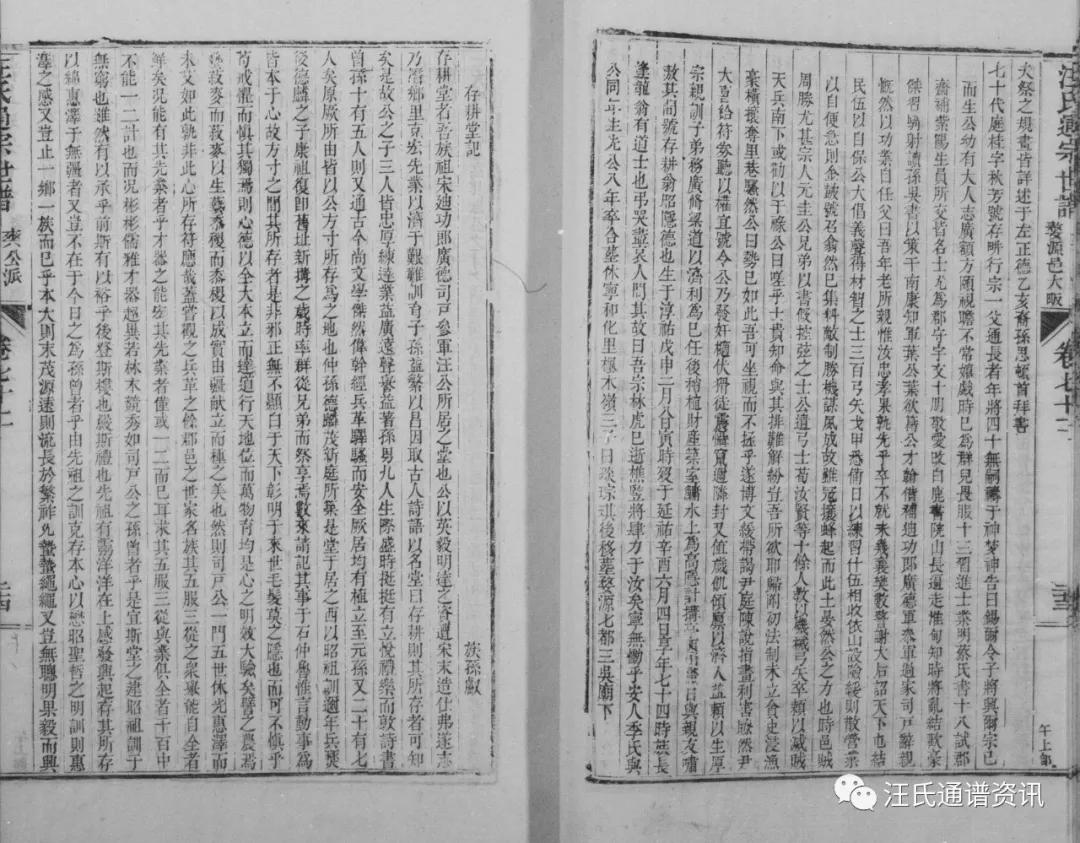 汪氏通宗世譜
婺源邑大畈
卷七十二
二三
午上部
大祭之規畫皆詳述于左正德乙亥裔孫思頓首拜書
七十代庭桂字秋芳號存畊行宗一父通長者年將四十無嗣禱于神夢神告曰錫爾令子將興爾宗已
而生公幼有大人志廣額方頤視瞻不常嬉戲時已為群兒畏服十三習進士業明蔡氏書十八試郡
齋補紫陽生員所交皆名士尤為郡守字文十朋敬愛改白鹿書院山長還走惟甸知時將亂結歐家
傑習騎射讀孫吳書以策干南康知軍葉公葉欲為公才翰偕補迪功郎廣德軍參軍過家司戶辭親
慨然以功業自任父曰吾年老所親惟汝忠孝果孰先乎卒不就未幾襄樊數警謝太后詔天下也結
民伍以自保公大倡義聲得材智之士三百弓矢戈甲悉備日以練習什伍相收依山設險緩則散營業
以自便急則全誠號召翕然已集料敵制勝機謀風成故雖寇攘蜂起而此土晏然公之力也時邑賊
周勝尤甚宗人元圭公兄弟以書假控弦之士公遺弓士荀汝賢等十餘人教以機械弓矢卒賴以滅賊
天兵南下或勸以干祿公曰嗟乎士貴知命與其排難解紛豈吾所欲耶歸附初法制未立倉史浸漁
豪橫攘奪里巷騷然公曰勢已如此吾可坐視而不拯乎遂博文緩帶謁尹庭陳說指畫利害瞭然尹
大喜給符案聽以檔宜號令公乃發奸摘伏冊徒震懾竄遁隣封又值歲飢傾廩以濟人益賴以生厚
宗親訓子弟務廣脩梁道以濟利為已任後增植財產築室鏞水上為高隱計搆亭賓嘗日與親友嘯
敖其間號存耕翁昭隱德也生于淳祐戊申二月公寅時歿于延祐辛酉六月四日享年七十四時族長
蓬龍翁有道士也弔哭盡哀人問其故曰吾宗林虎巳逝樵豎將肆力于汝矣寧無慟乎安人季氏與
公同年生先公八年卒合塟休寧和化里櫃木嶺三子日琰琮琪後移塟婺源七都三吳廟下
存耕堂記
族孫獻
存耕堂者吾族祖宋迪功郎廣德司戶參軍汪公所居之堂也公以英毅明達之資遭宋末造仕弗遂志
乃潛鄉里克宏先業以濟于艱難訓育子孫益繁以昌因取古人詩語以名堂曰存耕則其所存者可知
矣是故公之子三人皆忠厚練達業益廣遠聲譽益著孫男九人生際盛時挺挺有立悅禮樂而敦詩書
曾孫十有五人則又通古今尚文學傑然偉幹經兵革驛騷而安全厥居均有植立至元孫又二十有七
人矣原厥所由皆以公方寸所存為之地也仲孫德麟茂新庭所築是堂于居之西以昭祖訓遡年兵燹
後德麟之子康祖復卽舊址新搆之歲時率群從兄弟而祭享焉數來請記其事于石仲魯惟言動事為
皆本于心故方寸之間其所存者是非邪正無不顯白于天下彰明于來世毛髮莫之隱也而可不慎乎
苟戒懼而慎其獨焉則心德以全大本立而達道行天地位而萬物育均是心之明效大驗矣譬之農焉
必菽麥而菽麥以生藝黍稷而黍稷以成實由疆畎立而種之美也然則司戶公一門五世休光惠澤而
未艾如此孰非此心所存符應哉蓋嘗觀之兵革之餘郡邑之世家名族其五服三從之衆嶽能自全者
鮮矣況能有其先業者乎才器之能宏其先業者僅或一二而巳耳求其五服三從與業俱全者千百中
不能一二計也而況彬彬儒雅才器超異若林木競秀如司戶公之孫曾者乎是宜斯堂之建昭祖訓于
無窮也雖然有以承乎前斯有以裕乎後登斯樓也嚴斯禮也先祖有靈洋洋在上感發興起存其所存
以綿惠澤于無疆者又豈不在于今日之為孫曾者乎由先祖之訓克存本心以懋昭聖哲之明訓則惠
澤之感又豈止一鄉一族而巳乎本大則末茂源遠則流長於繁祚允蟄蟄繩繩又豈無聰明果毅而興
汪氏通宗世譜
爽公派
卷七十二
二四
汪氏通谱资讯